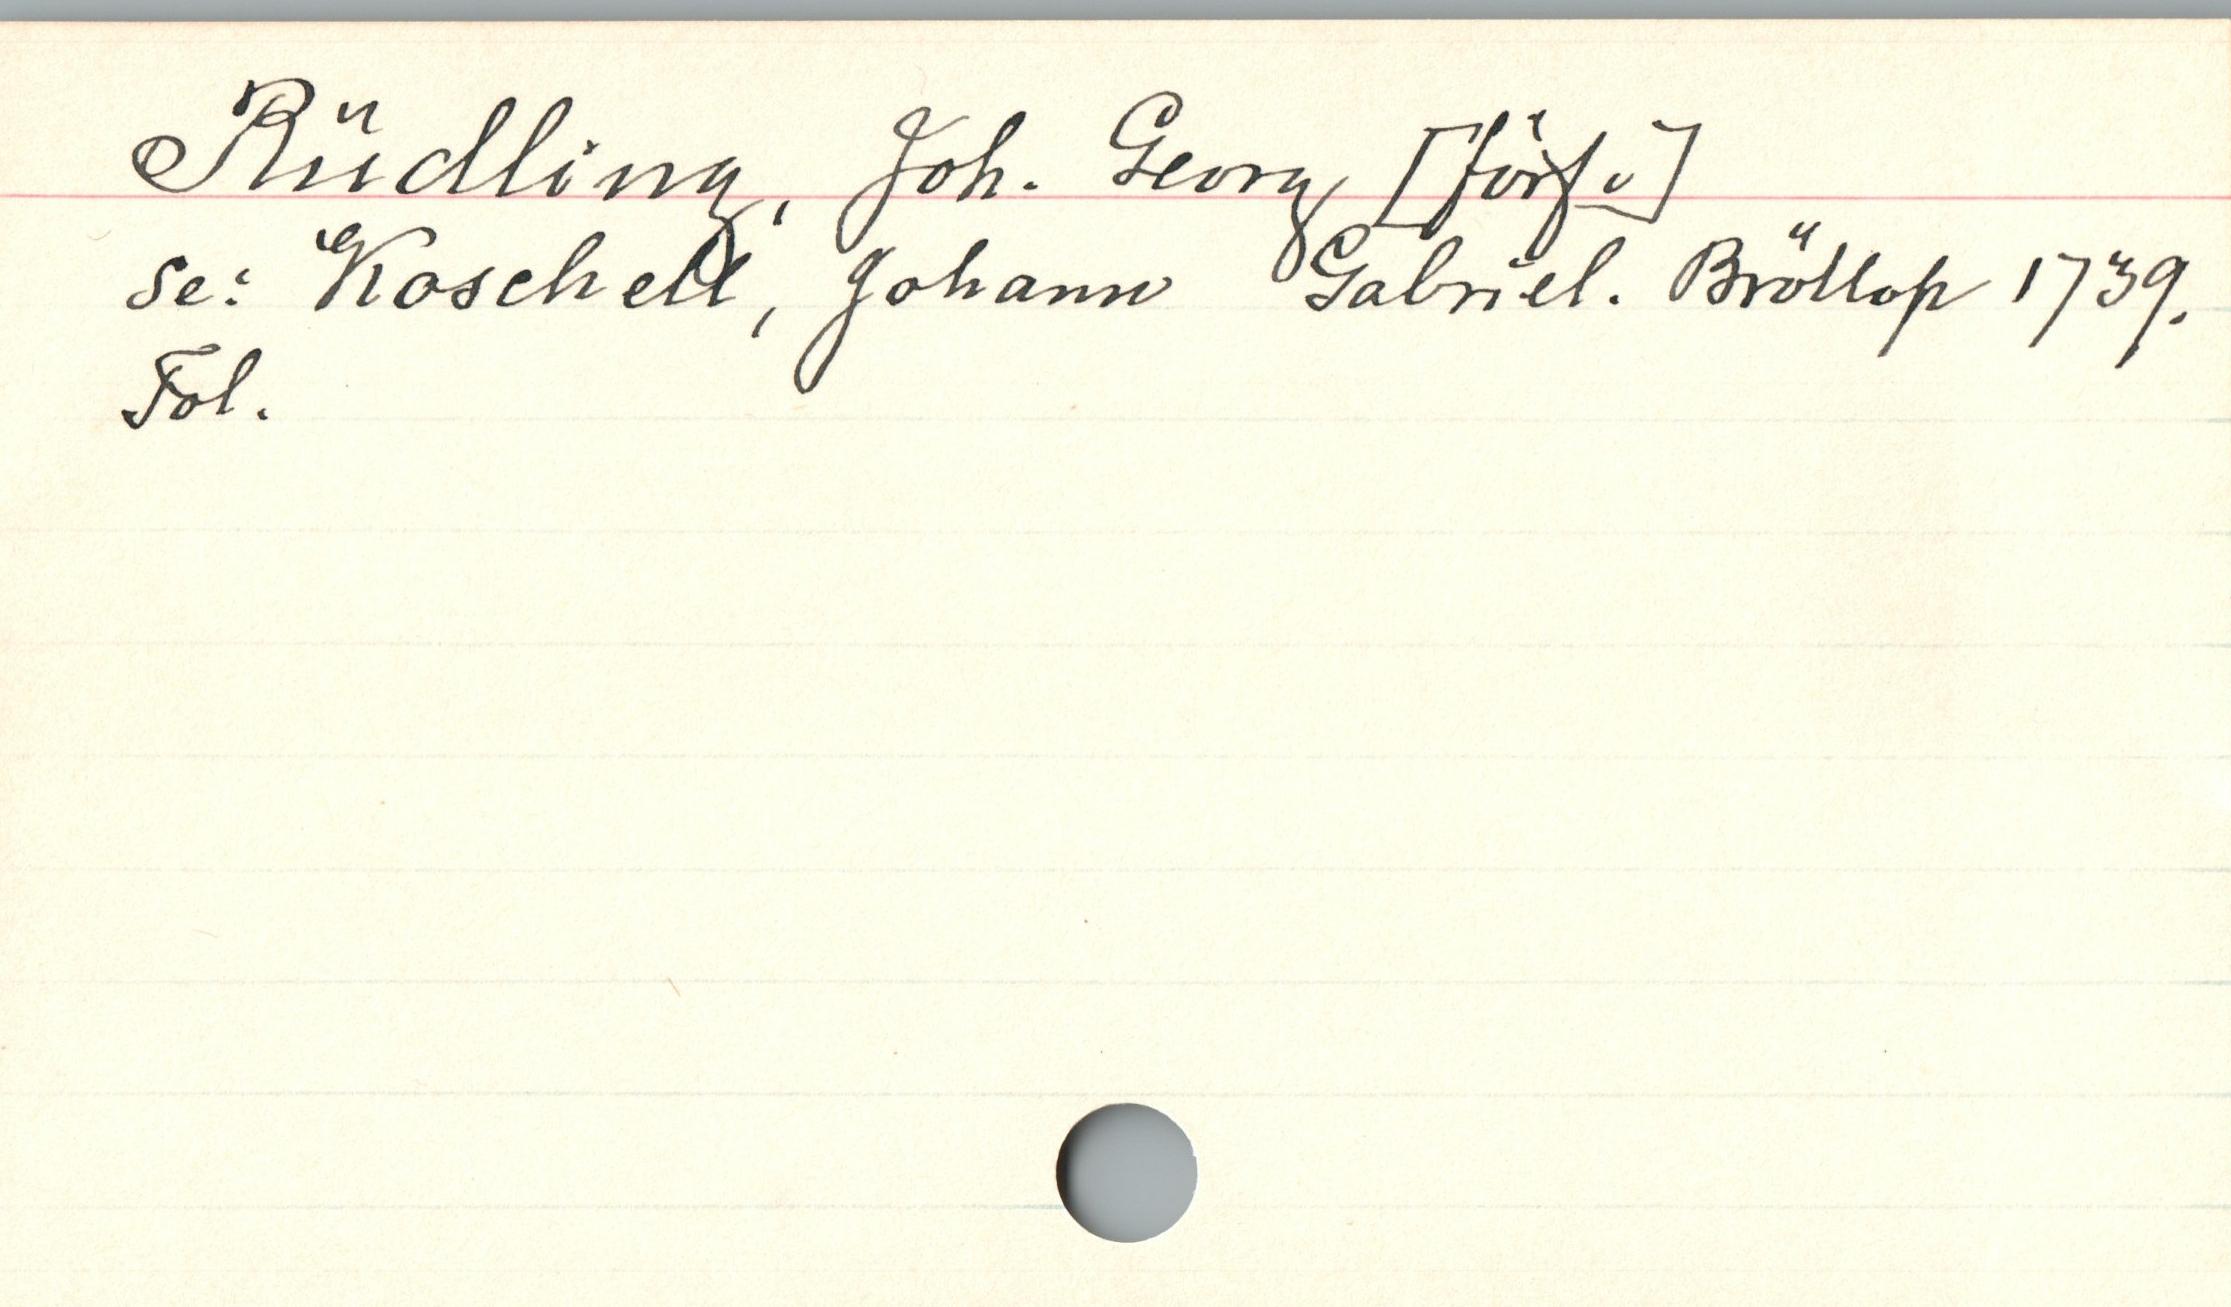 Rüdling, Joh. Georg [förf.]
se: Koschell, Johann Gabriel. Bröllop 1739.
Fol.